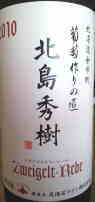 2010
北海道余市町
葡萄作りの匠
北島秀樹
Zweigelt-Rebe